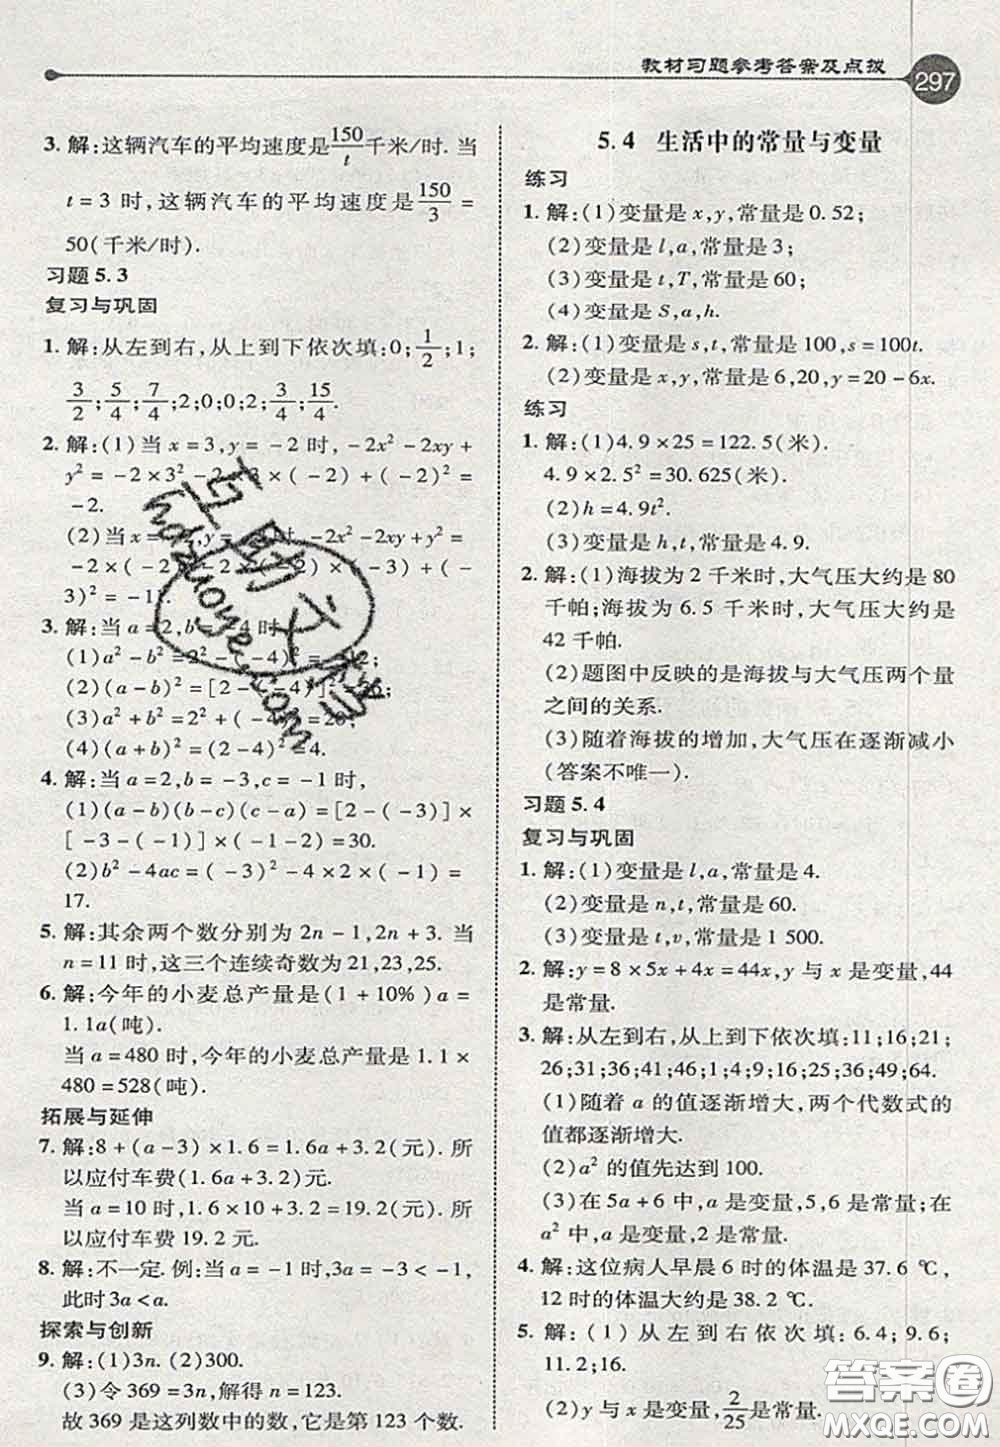 教材习题参考答案及点拨
297
3. 解:这辆汽车的平均速度是150/t千米/时. 当
t=3 时,这辆汽车的平均速度是150/3=
50(千米/时).
习题 5.3
复习与巩固
1. 解:从左到右,从上到下依次填:0;1/2;1;
3/2;5/4;7/4;2;0;0;2;3/4;15/4.
2. 解:(1)当 x=3,y=-2 时,-2x²-2xy+
y²=-2×3²-2×3×(-2)+(-2)²=
-2.
(2)当 x=  ,y=  时,-2x²-2xy+y²=
-2×(-2)²-2×  ×(-3)+(-
3)²=-1
3. 解:当 a=2,b=-4 时,
(1)a²-b²=2²-(-4)²=-12;
(2)(a-b)²=[2-(-4)]²=36;
(3)a²+b²=2²+(-4)²=20;
(4)(a+b)²=(2-4)²=4.
4. 解:当 a=2,b=-3,c=-1 时,
(1)(a-b)(b-c)(c-a)=[2-(-3)]×
[-3-(-1)]×(-1-2)=30.
(2)b²-4ac=(-3)²-4×2×(-1)=
17.
5. 解:其余两个数分别为 2n-1,2n+3. 当
n=11 时,这三个连续奇数为 21,23,25.
6. 解:今年的小麦总产量是(1+10%)a=
1.1a(吨).
当 a=480 时,今年的小麦总产量是 1.1×
480=528(吨).
拓展与延伸
7. 解:8+(a-3)×1.6=1.6a+3.2(元). 所
以应付车费(1.6a+3.2)元.
当 a=10 时,1.6×10+3.2=19.2(元). 所
以应付车费 19.2 元.
8. 解:不一定. 例:当 a=-1 时,3a=-3<-1,
此时 3a<a.
探索与创新
9. 解:(1)3n. (2)300.
(3)令 369=3n,解得 n=123.
故 369 是这列数中的数,它是第 123 个数.
5.4 生活中的常量与变量
练习
1. 解:(1)变量是 x,y,常量是 0.52;
(2)变量是 l,a,常量是 3;
(3)变量是 t,T,常量是 60;
(4)变量是 S,a,h.
2. 解:(1)变量是 s,t,常量是 100,s=100t.
(2)变量是 x,y,常量是 6,20,y=20-6x.
练习
1. 解:(1)4.9×25=122.5(米).
4.9×2.5²=30.625(米).
(2)h=4.9t².
(3)变量是 h,t,常量是 4.9.
2. 解:(1)海拔为 2 千米时,大气压大约是 80
千帕;海拔为 6.5 千米时,大气压大约是
42 千帕.
(2)题图中反映的是海拔与大气压两个量
之间的关系.
(3)随着海拔的增加,大气压在逐渐减小
(答案不唯一).
习题 5.4
复习与巩固
1. 解:(1)变量是 l,a,常量是 4.
(2)变量是 n,t,常量是 60.
(3)变量是 t,v,常量是 1 500.
2. 解:y=8×5x+4x=44x,y 与 x 是变量,44
是常量.
3. 解:从左到右,从上到下依次填:11;16;21;
26;31;36;41;46;1;4;9;16;25;36;49;64.
(1)随着 a 的值逐渐增大,两个代数式的
值都逐渐增大.
(2)a² 的值先达到 100.
(3)在 5a+6 中,a 是变量,5,6 是常量;在
a² 中,a 是变量,2 是常量.
4. 解:这位病人早晨 6 时的体温是 37.6 ℃,
12 时的体温大约是 38.2 ℃.
5. 解:(1)从左到右依次填:6.4;9.6;
11.2;16.
(2)y 与 x 是变量,2/25是常量.
互助文档
hdzuoye.com
答案圈
MXQE.COM